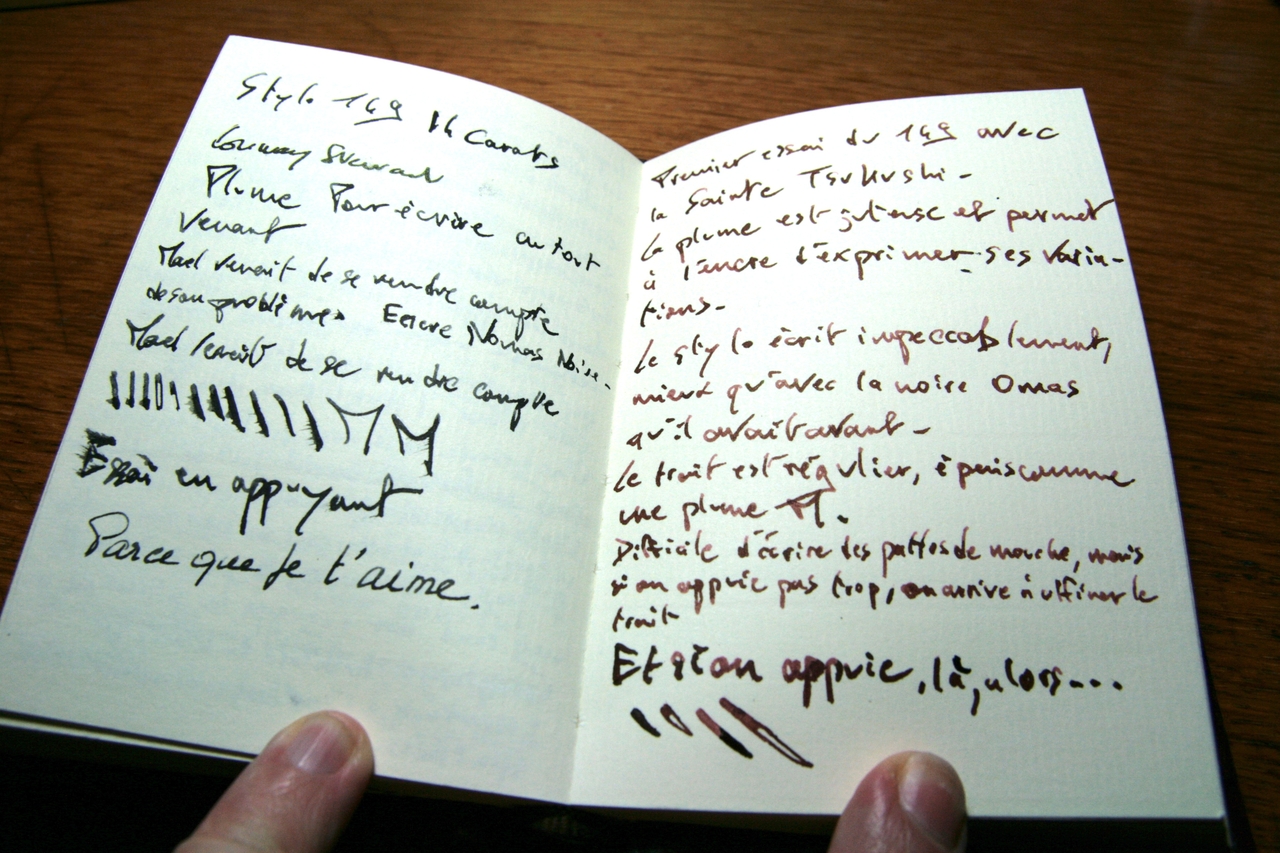 Stylo 149 14 Carats
Plume Pour écrire au tout
venant
Mael venait de se rendre compte
de son problème. Encre Nomas Noire.
Mael venait de se rendre compte
M M
Essai en appuyant
Parce que je t'aime.
Premier essai du 149 avec
la Sainte Tsukushi -
la plume est jutense et permet
à l'encre d'exprimer ses varia-
tions -
le stylo écrit impeccablement,
mieux qu'avec la noire Omas
qu'il avait avant -
le trait est régulier, épais comme
une plume M.
Difficile d'écrire des pattes de mouche, mais
si on appuie pas trop, on arrive à affiner le
trait
Et si on appuie, là, alors...